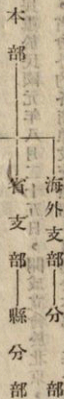 本部
海外支部——分部
省支部——縣分部